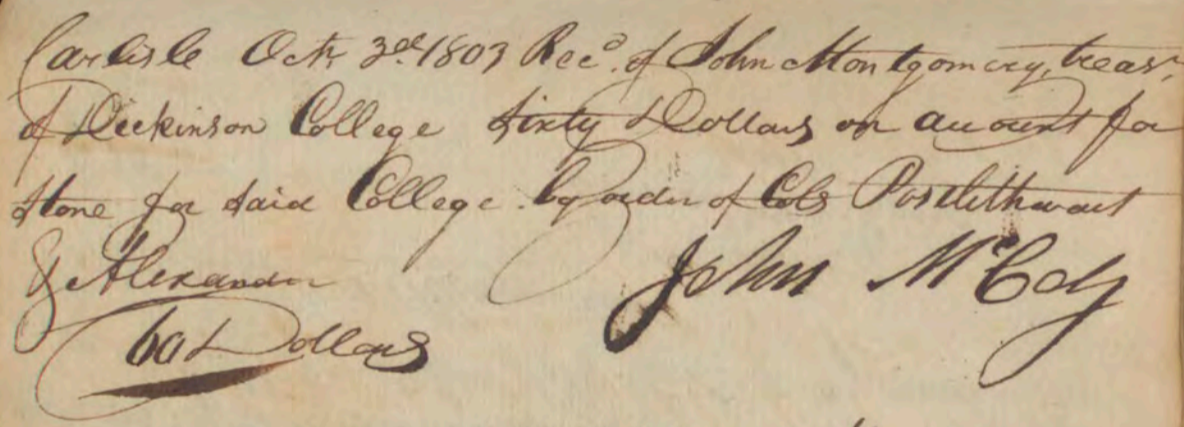 Carlisle Octr. 3d. 1803 Recd. of John Montgomery, treasr.
of Dickinson College Sixty Dollars on account for
Stone for said College. by order of Cols Poselethwait
& Alexander
John McCoy
60 Dollars